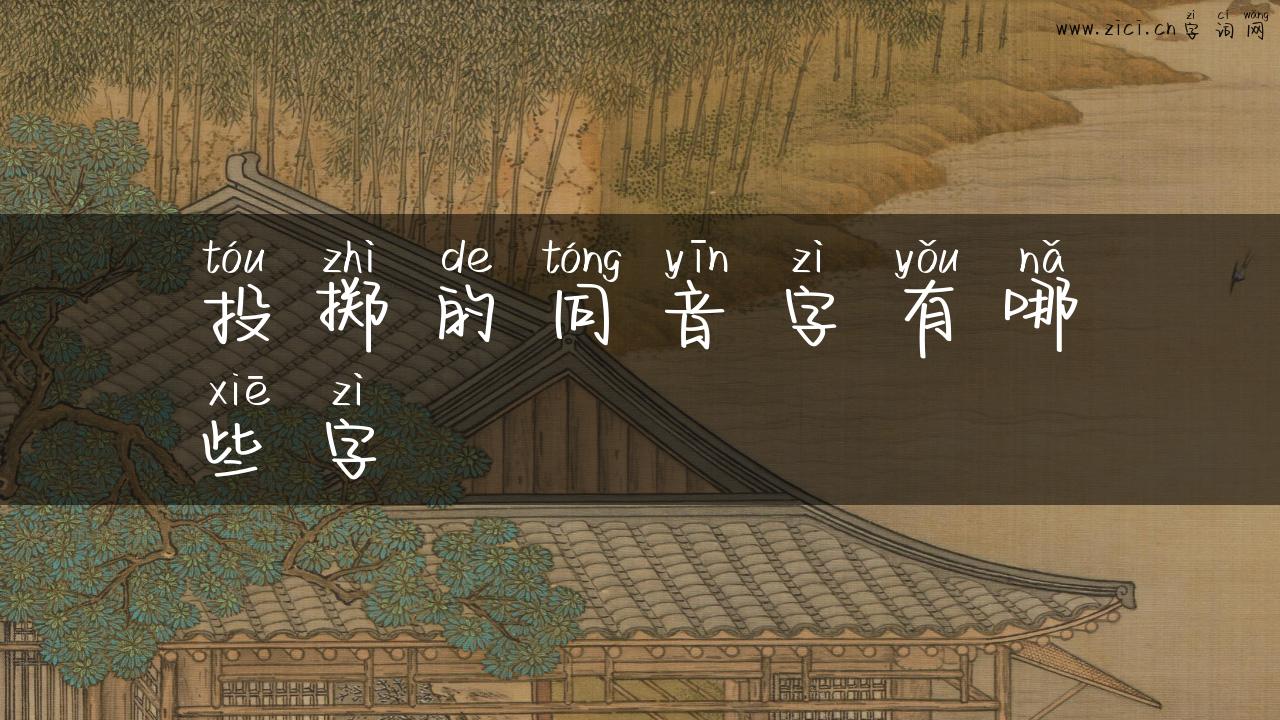 zì cí wǎng
www.zici.cn字词网
tóu zhì de tóng yīn zì yǒu nǎ
投掷的同音字有哪
xiē zì
些字